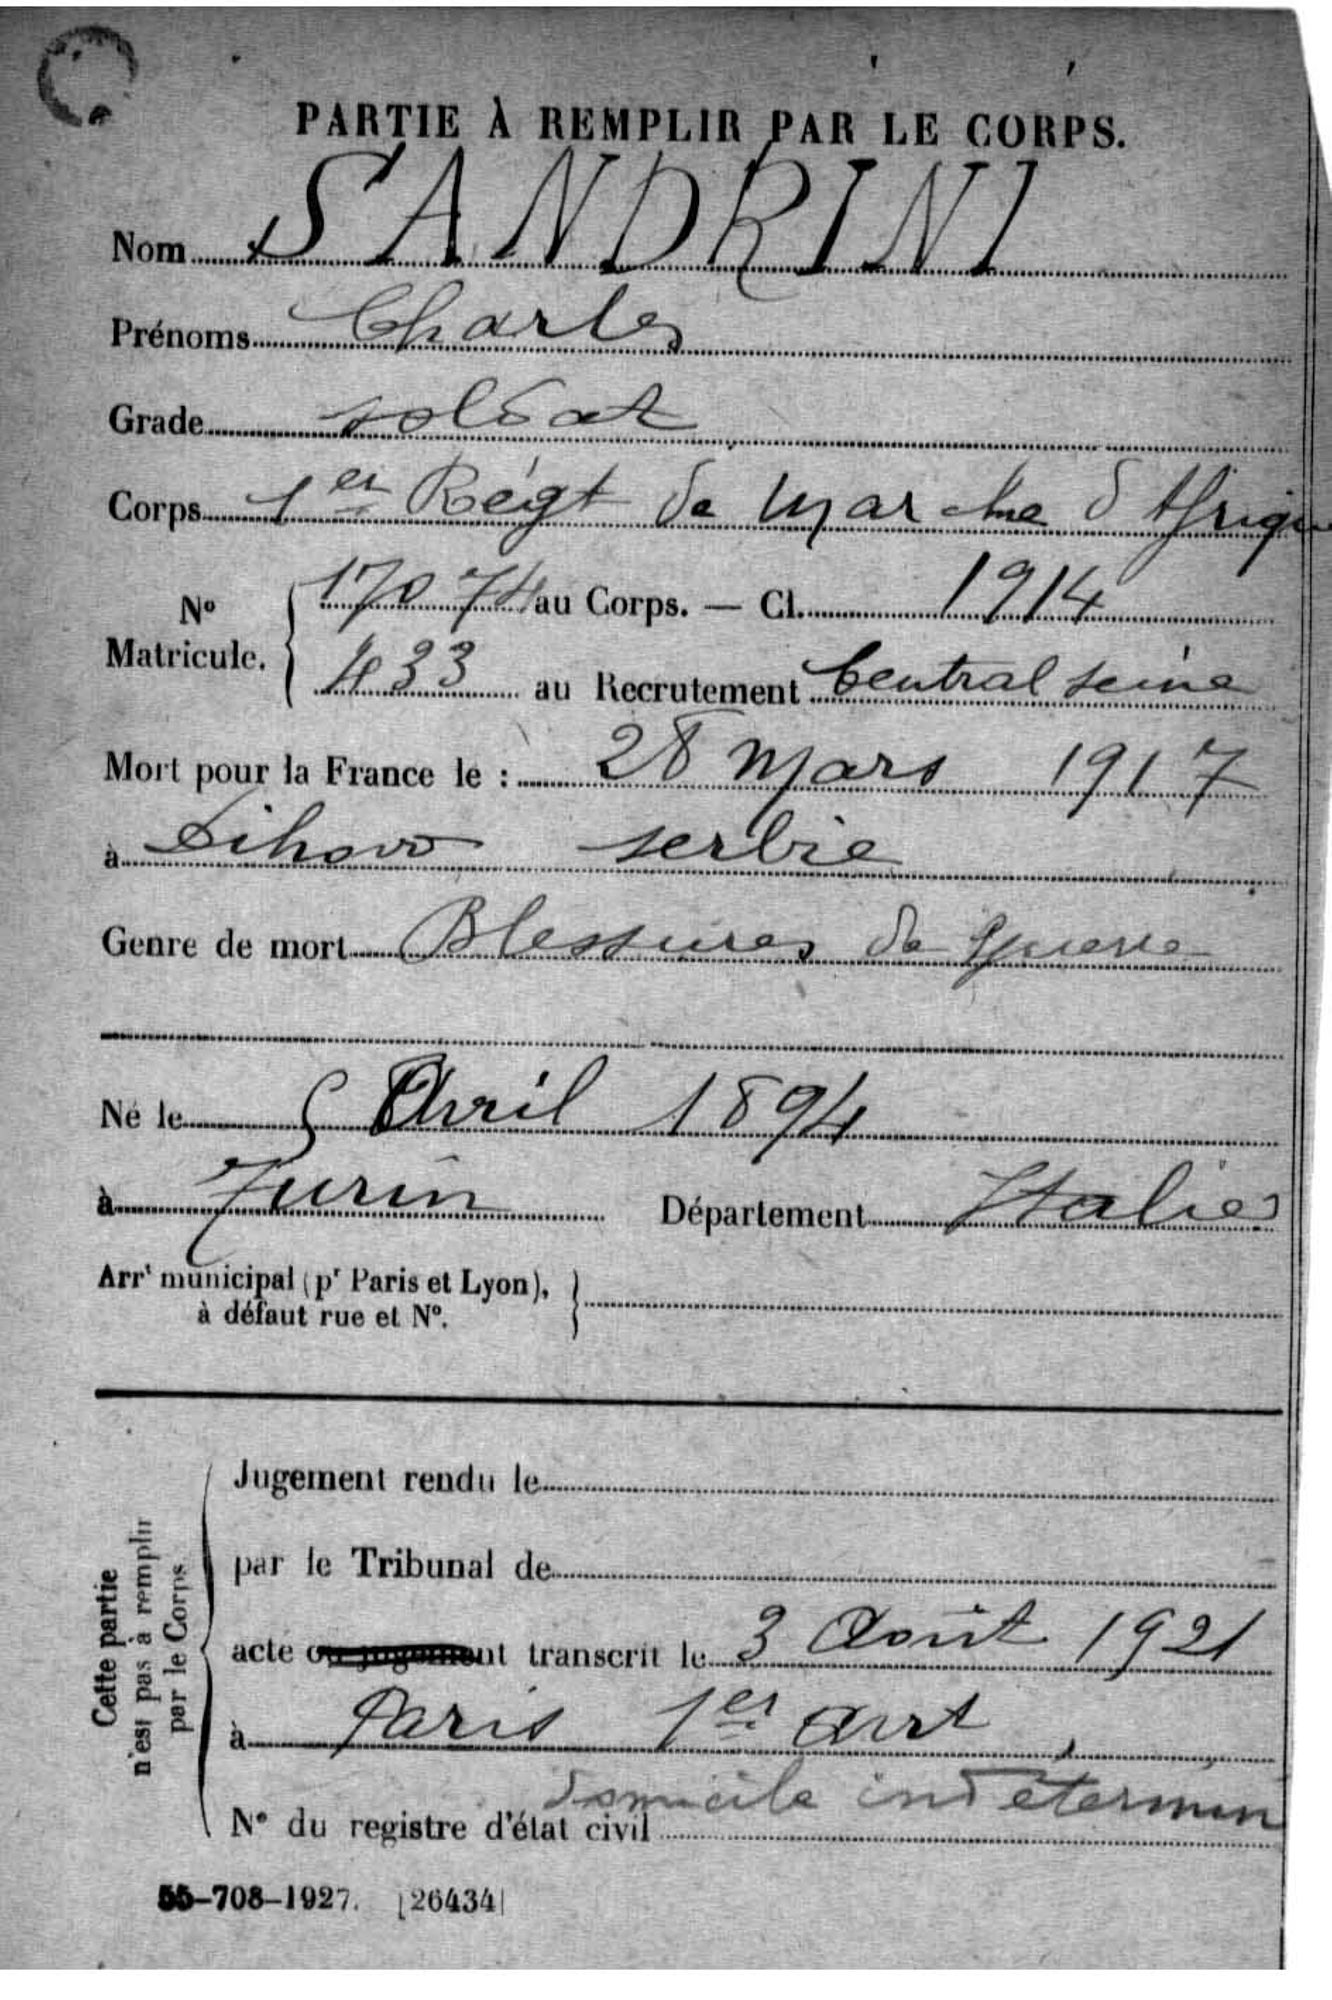 PARTIE À REMPLIR PAR LE CORPS.
Nom SANDRINI
Prénoms Charles
Grade soldat
Corps 1er Régt de Marche d'Afrique
No Matricule. 17074 au Corps. — Cl. 1914
433 au Recrutement Central Seine
Mort pour la France le : 28 Mars 1917
à Dihovo Serbie
Genre de mort Blessures de guerre
Né le 5 Avril 1894
à Turin Département Italie
Arrt municipal (pr Paris et Lyon),
à défaut rue et No.
Cette partie
n'est pas à remplir
par le Corps
Jugement rendu le
par le Tribunal de
acte ou jugement transcrit le 3 Août 1921
à Paris 1er Arrt
domicile indétermin
No du registre d'état civil
55-708-1927. [26434]